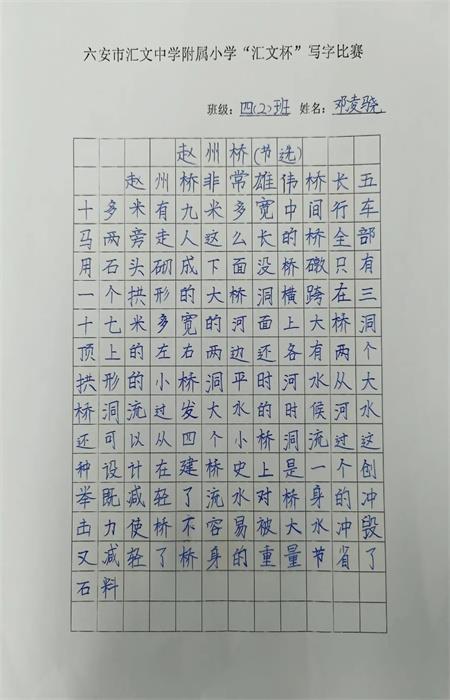 六安市汇文中学附属小学“汇文杯”写字比赛
班级：四（2）班 姓名：邓凌骁
赵州桥（节选）
赵州桥非常雄伟桥长五
十多米有九米多宽中间行车
马两旁走人这么长的桥全部
用石头砌成下面没桥礅只有
一个拱形的大桥洞横跨在三
十七米多宽的河面上大桥洞
顶上的左右两边还各有两个
拱形的小桥洞平时河水从大
桥洞流过发大水的时候河水
还可以从四个小桥洞流过这
种设计在建桥史上是一个创
举既减轻了流水对桥身的冲
击力使桥不容易被大水冲毁
又减轻了桥身的重量节省了
石料